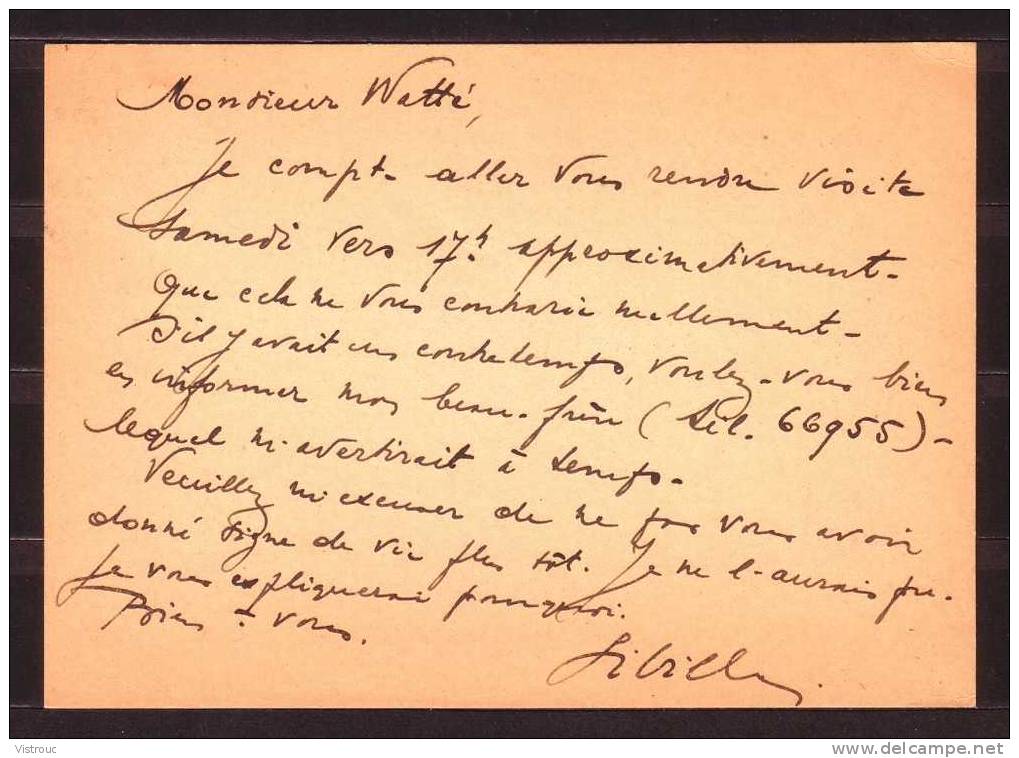 Monsieur Watté,
Je compte aller vous rendre visite
samedi vers 17h. approximativement -
Que cela ne vous contrarie nullement -
S'il y avait un contretemps, voulez-vous bien
en informer mon beau-frère (tél. 66955) -
lequel m'avertirait à temps.
Veuillez m'excuser de ne pas vous avoir
donné signe de vie plus tôt. Je ne l'aurais pu.
Je vous expliquerai pourquoi.
Bien à vous.
Vistrouc
www.delcampe.net